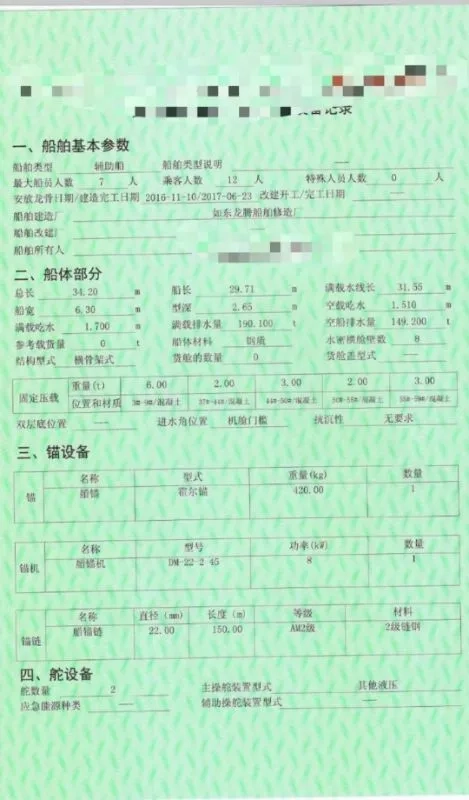 设备记录
一、船舶基本参数
船舶类型 辅助船 船舶类型说明 —
最大船员人数 7 人 乘客人数 12 人 特殊人员人数 0 人
安放龙骨日期/建造完工日期 2016-11-10/2017-06-23 改建开工/完工日期 —
船舶建造厂 如东龙腾船舶修造厂
船舶改建厂 —
船舶所有人
二、船体部分
总长 34.20 m 船长 29.71 m 满载水线长 31.55 m
船宽 6.30 m 型深 2.65 m 空载吃水 1.510 m
满载吃水 1.700 m 满载排水量 190.100 t 空船排水量 149.200 t
参考载货量 0 t 船体材料 钢质 水密横舱壁数 8
结构型式 横骨架式 货舱的数量 0 货舱盖型式 —
固定压载 重量(t) 6.00 2.00 3.00 2.00 3.00
位置和材质 3#-9#/混凝土 37#-44#/混凝土 44#-50#/混凝土 50#-55#/混凝土 55#-59#/混凝土
双层底位置 — 进水角位置 机舱门槛 抗沉性 无要求
三、锚设备
名称 型式 重量(kg) 数量
锚 艏锚 霍尔锚 420.00 1
名称 型号 功率(kW) 数量
锚机 艏锚机 DM-22-2-45 8 1
名称 直径(mm) 长度(m) 等级 材料
锚链 艏锚链 22.00 150.00 AM2级 2级链钢
四、舵设备
舵数量 2 主操舵装置型式 其他液压
应急能源种类 — 辅助操舵装置型式 —